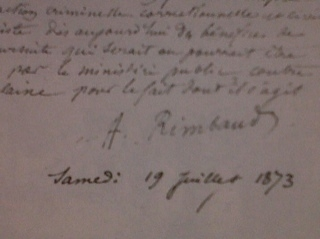 action criminelle, correctionnelle et civile
siste dès aujourd'hui au bénéfice de
ursuite qui serait ou pourrait être
par le ministère public contre
laine pour le fait dont il s'agit
A. Rimbaud
Samedi 19 Juillet 1873